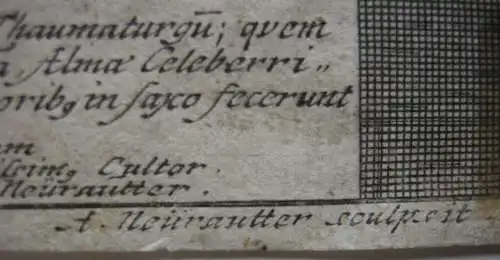 Thaumaturgū; quem
a, Alma Celeberri„
orib9 in saxo fecerunt
em
Cultor.
Neürautter.
A. Neürautter sculpsit